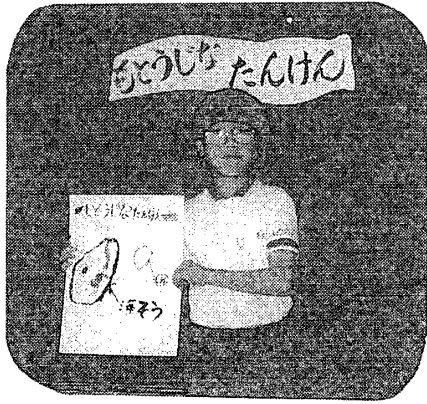 もとうじな たんけん
もとうじなたんけん
海そう